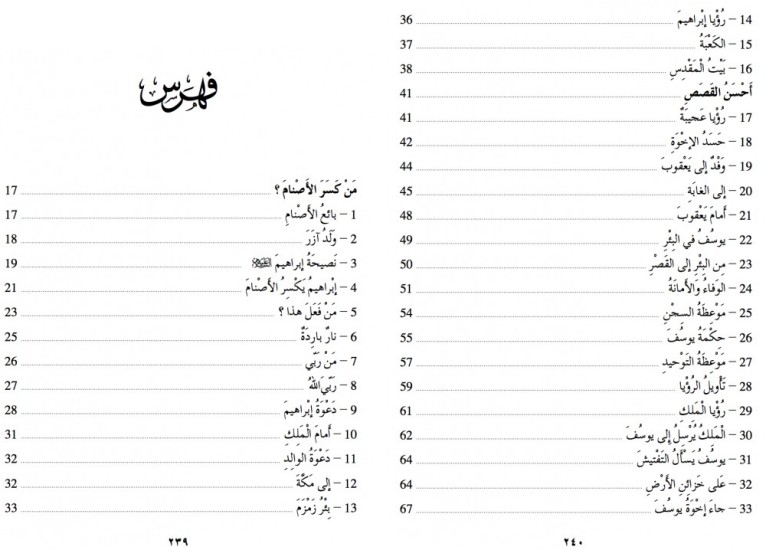 فهرس
مَنْ كَسَرَ الأَصْنامَ ؟ 17
1 – بائعُ الأَصْنامِ 17
2 – وَلَدُ آزَرَ 18
3 – نَصيحَةُ إبراهيمَ 19
4 – إبْراهيمُ يَكْسِرُ الأَصْنامَ 21
5 – مَنْ فَعَلَ هذا ؟ 23
6 – نارٌ بارِدَةٌ 25
7 – مَنْ رَبِّي 26
8 – رَبِّيَ اللهُ 27
9 – دَعْوَةُ إبْراهيمَ 28
10 – أَمامَ الْمَلِكِ 31
11 – دَعْوَةُ الوالِدِ 32
12 – إلى مَكَّةَ 32
13 – بِئْرُ زَمْزَمَ 33
٢٣٩
14 – رُؤْيا إبْراهيمَ 36
15 – الكَعْبَةُ 37
16 – بَيْتُ الْمَقْدِسِ 38
أَحْسَنُ القَصَصِ 41
17 – رُؤْيا عَجيبَةٌ 41
18 – حَسَدُ الإخْوَةِ 42
19 – وَفْدٌ إلى يَعْقوبَ 44
20 – إلى الغابَةِ 45
21 – أَمامَ يَعْقوبَ 48
22 – يوسُفُ في البِئْرِ 49
23 – مِن البِئْرِ إلى القَصْرِ 50
24 – الوَفاءُ وَالأَمانَةُ 51
25 – مَوْعِظَةُ السِجْنِ 54
26 – حِكْمَةُ يوسُفَ 55
27 – مَوْعِظَةُ التَوْحيدِ 57
28 – تَأْويلُ الرُؤْيا 59
29 – رُؤْيا الْمَلِكِ 61
30 – الْمَلِكُ يُرْسِلُ إِلى يوسُفَ 62
31 – يوسُفُ يَسْأَلُ التَفْتيشَ 64
32 – عَلى خَزائِنِ الأَرْضِ 64
33 – جاءَ إخْوَةُ يوسُفَ 67
٢٤٠